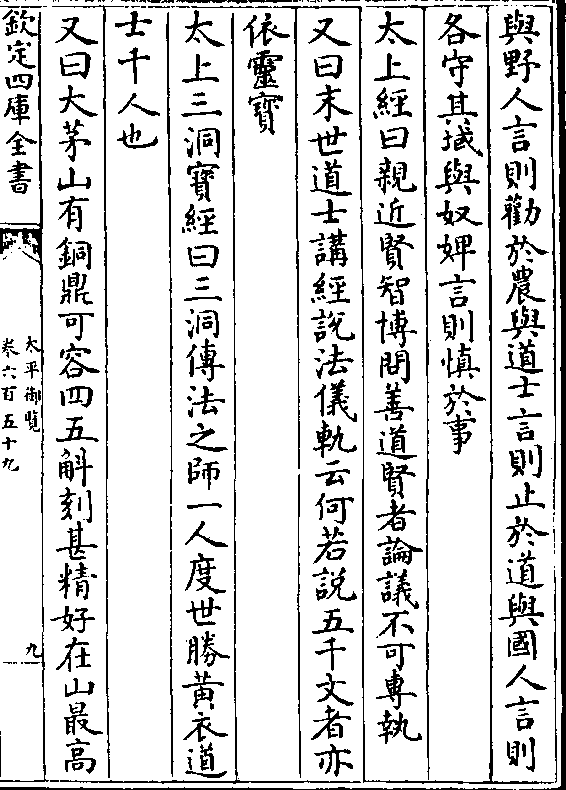 與野人言則勸於農與道士言則止於道與國人言則
各守其域與奴婢言則慎於事
太上經曰親近賢智博問善道賢者論議不可專執
又曰末世道士講經說法儀軌云何若說五千文者亦
依靈寶
太上三洞寶經曰三洞傳法之師一人度世勝黃衣道
士千人也
又曰大茅山有銅鼎可容四五斛刻甚精好在山最高
欽定四庫全書
太平御覽
卷六百五十九
九